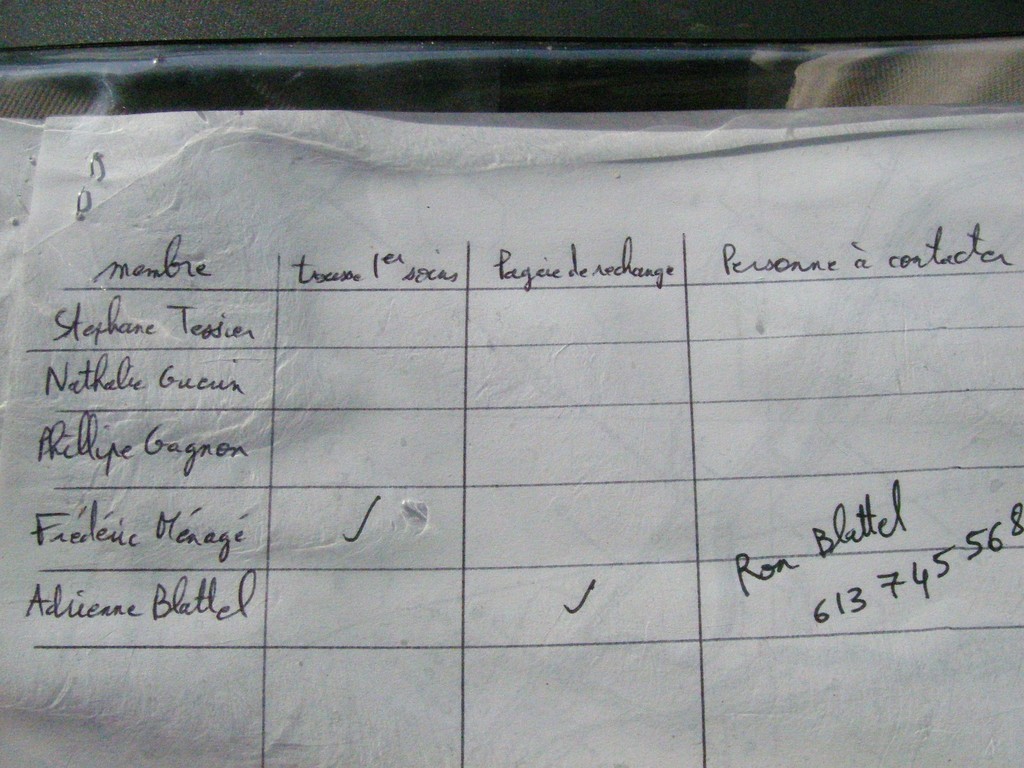 membre trousse 1er soins Pagaie de rechange Personne à contacter
Stephane Tessier
Nathalie Guerin
Phillipe Gagnon
Frédéric Ménagé ✓
Adrienne Blattel ✓ Ron Blattel
613 745 568